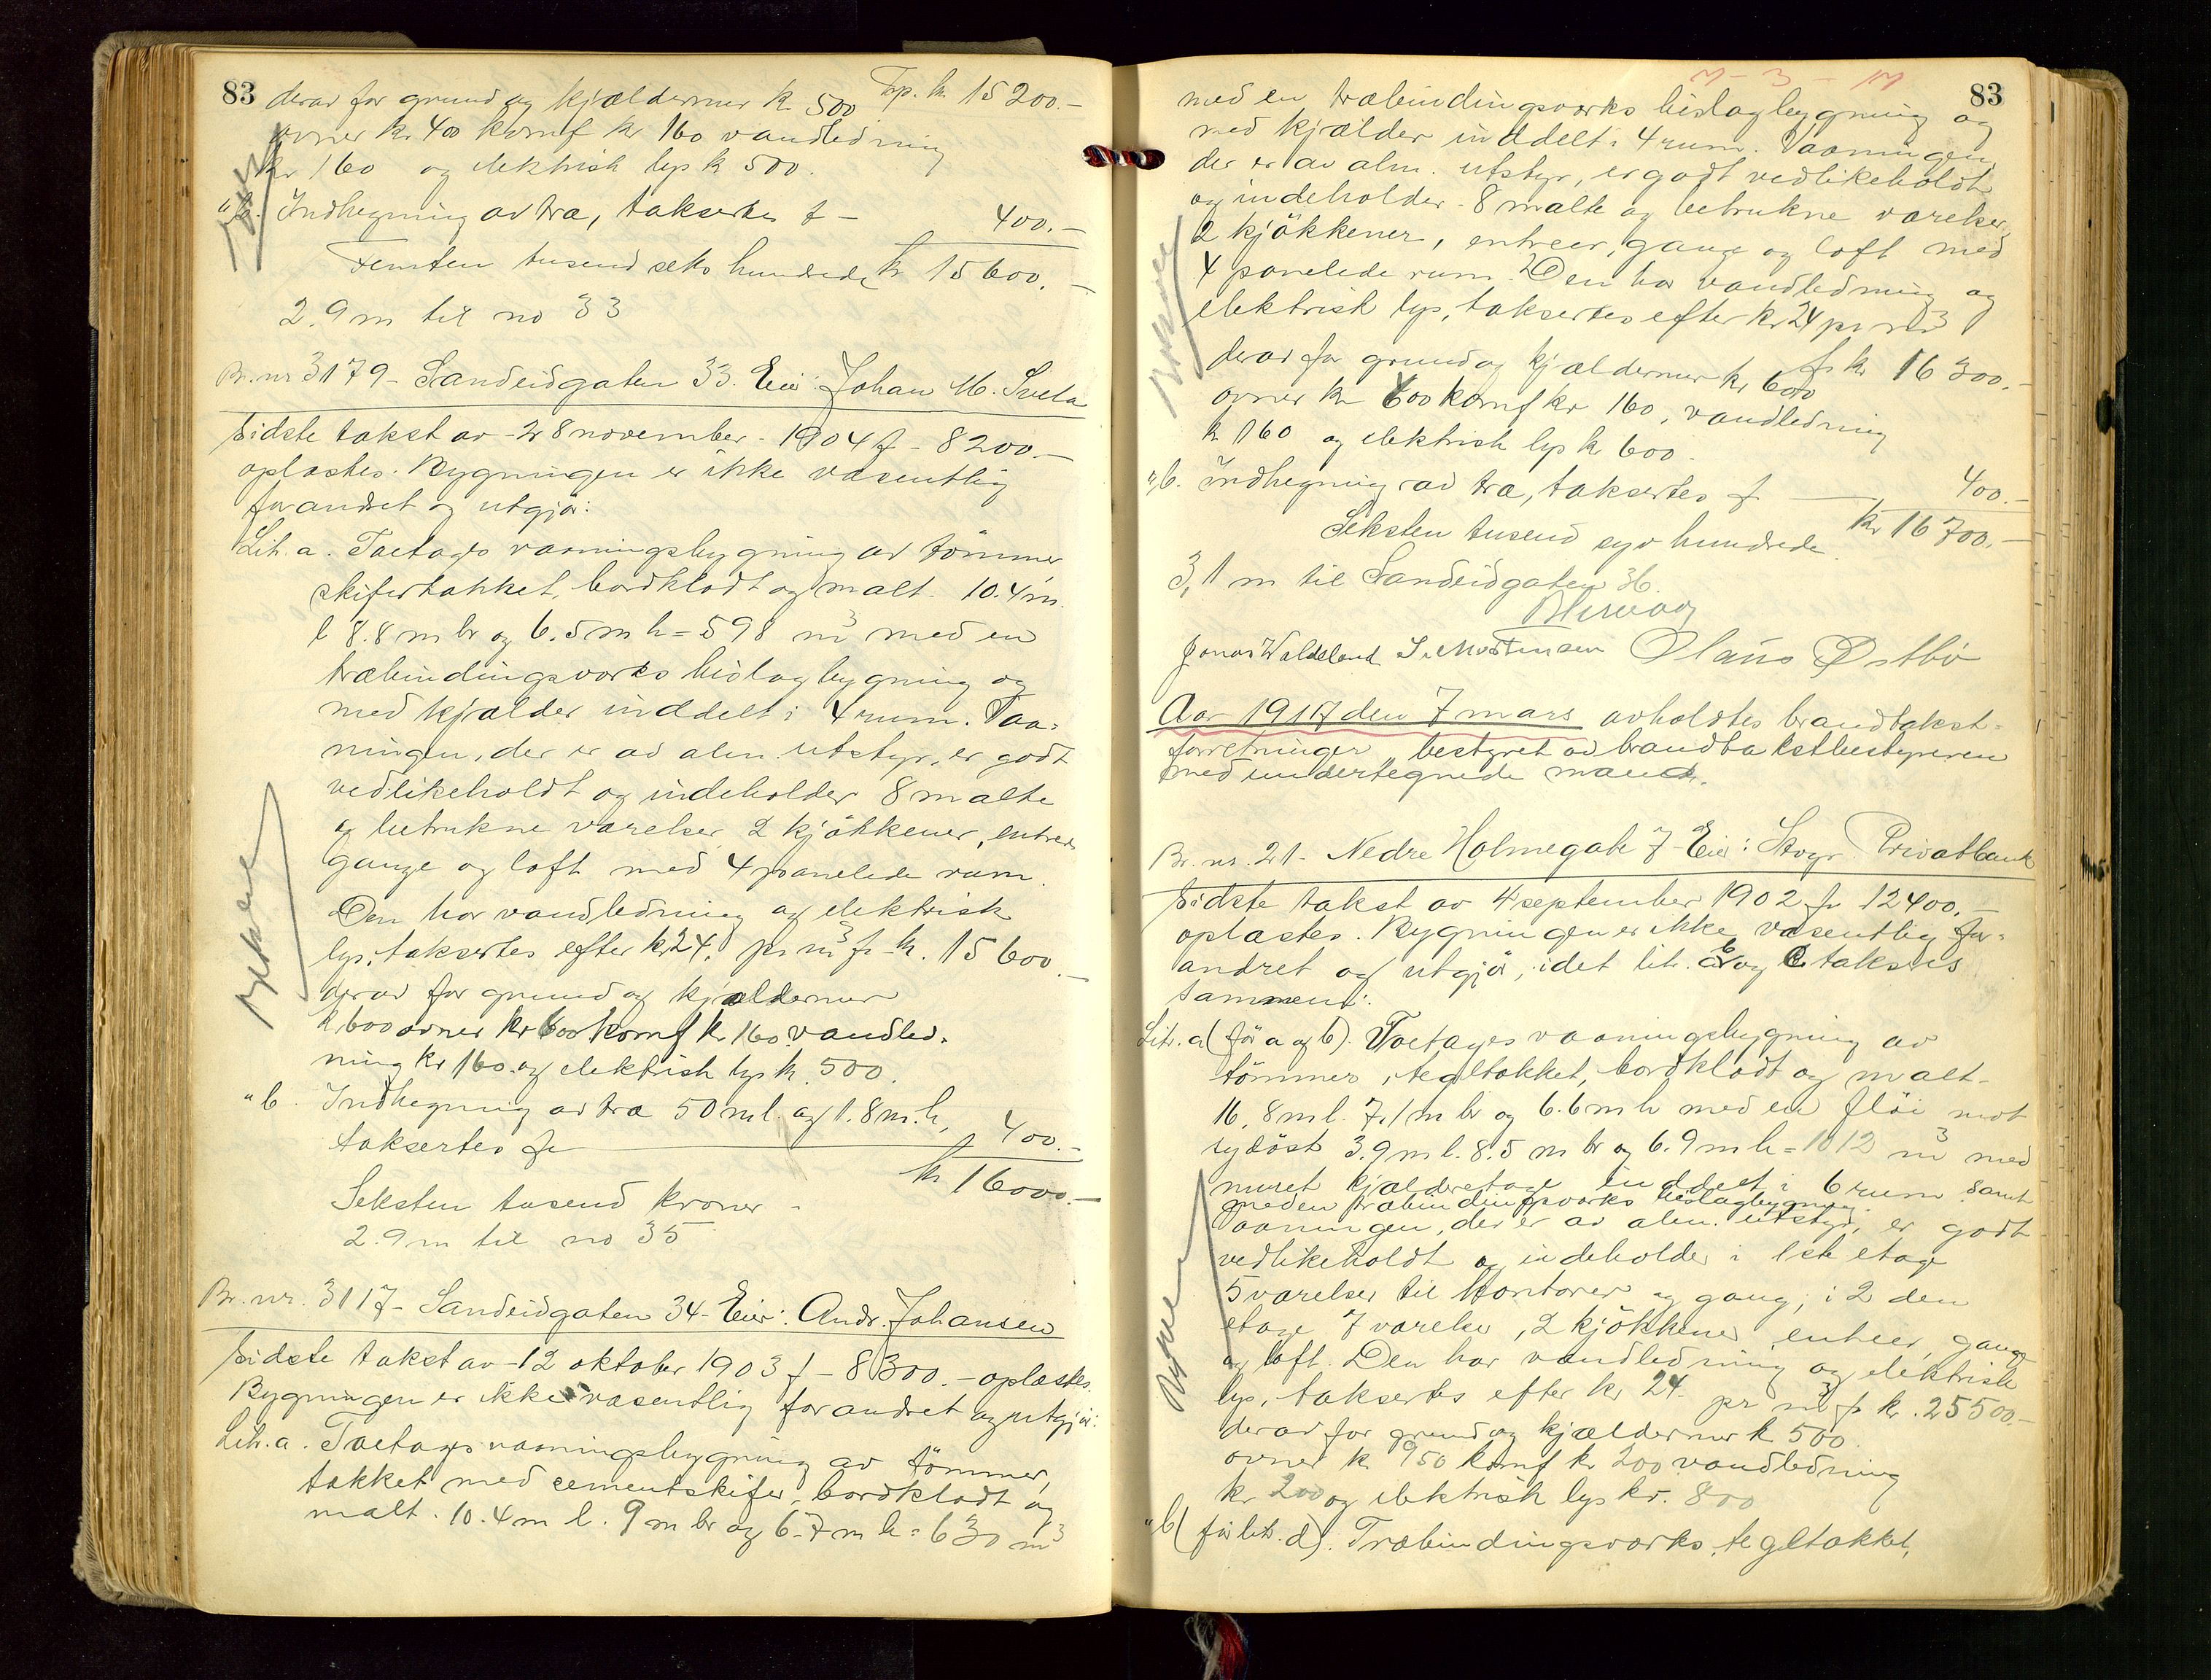 83 derav for grund og kjældermur kr 500 Trp. kr. 15200.-
ovner kr. 400 komf kr 160 vandledning
kr 160 og elektrisk lys kr 500.
" b. Indhegning av træ, taksertes f - 400.-
Femten tusend seks hundrede kr 15600.-
2.9 m til no 33
Br. nr 3179 - Sandeidgaten 33. Eier: Johan M. Sveta
Sidste takst av 28 november 1904 f - 8200.-
oplæstes. Bygningen er ikke væsentlig
forandret og utgjør:
Lit. a. Toetages vaaningsbygning av tömmer
skifertækket, bordklædt og malt. 10.4 m.
l 8.8 m br og 6.5 m h = 598 m3 med en
træbindingsværks bislagbygning og
med kjælder inddelt i 4 rum. Vaa-
ningen, der er av alm. utstyr, er godt
vedlikeholdt og indeholder 8 malte
og betrukne værelser, 2 kjökkener, entreer
gange og loft med 4 panelede rum.
Den har vandledning og elektrisk
lys, taksertes efter kr 24. pr m3 f - kr. 15600.-
derav for grund og kjældermur
kr 600 ovner kr 600 komf kr 160. vandled-
ning kr 160. og elektrisk lys kr. 500.
" b. Indhegning av træ 50 m l. og 1.8 m. h,
taksertes f - 400.-
kr 16000.-
Seksten tusend kroner -
2.9 m til no 35
Br. nr. 3117 - Sandeidgaten 34 - Eier: Andr. Johansen
Sidste takst av - 12 oktober 1903 f - 8300.- oplæstes.
Bygningen er ikke væsentlig forandret og utgjør:
Lit. a. Toetages vaaningsbygning av tömmer,
tækket med cementskifer, bordklædt og
malt. 10.4 m l. 9 m br og 6.7 m h = 630 m3
7 - 3 - 17
83
med en træbindingsværks bislagbygning og
med kjælder inddelt i 4 rum. Vaaningen,
der er av alm. utstyr, er godt vedlikeholdt
og indeholder - 8 malte og betrukne værelser,
2 kjökkener, entreer, gange og loft med
4 panelede rum. Den har vandledning og
elektrisk lys, taksertes efter kr 24 pr m3
f kr 16300.-
derav for grund og kjældermur kr 600
ovner kr 600 komf kr 160, vandledning
kr 160 og elektrisk lys kr 600.
" b. Indhegning av træ, taksertes f - 400.-
kr 16700.-
Seksten tusend syv hundrede.
3,1 m til Sandeidgaten 36.
Jonas Waldeland S. Mortensen Olaus Østbö
Aar 1917 den 7 mars avholdtes brandtakst-
forretninger bestyret av brandtakstbestyreren
med undertegnede mænd.
Br. nr. 21 - Nedre Holmegate 7 - Eier: Stvgr. Privatbank
Sidste takst av 4 september 1902 f - 12400.-
oplæstes. Bygningen er ikke væsentlig for-
andret og utgjør, idet lit. b og c takseres
sammen:
Lit. a (för a og b). Toetages vaaningsbygning av
tömmer, tegltækket, bordklædt og malt -
16,8 m l. 7.1 m br og 6.6 m h med en flöi mot
sydöst 3.9 m l. 8.5 m br og 6.9 m h = 1012 m3 med
muret kjælderetage inddelt i 6 rum samt
med en træbindingsværks bislagbygning.
Vaaningen, der er av alm. utstyr, er godt
vedlikeholdt og indeholder i 1ste etage
5 værelser til kontorer og gang, i 2 den
etage 7 værelser, 2 kjökkener entreer, gange
og loft. Den har vandledning og elektrisk
lys, taksertes efter kr 24. pr m3 f kr. 25500.-
derav for grund og kjældermur kr 500
ovner kr 950 komf kr 200 vandledning
kr 200 og elektrisk lys kr. 800
" b (för lit. d). Træbindingsværks, tegltækket,